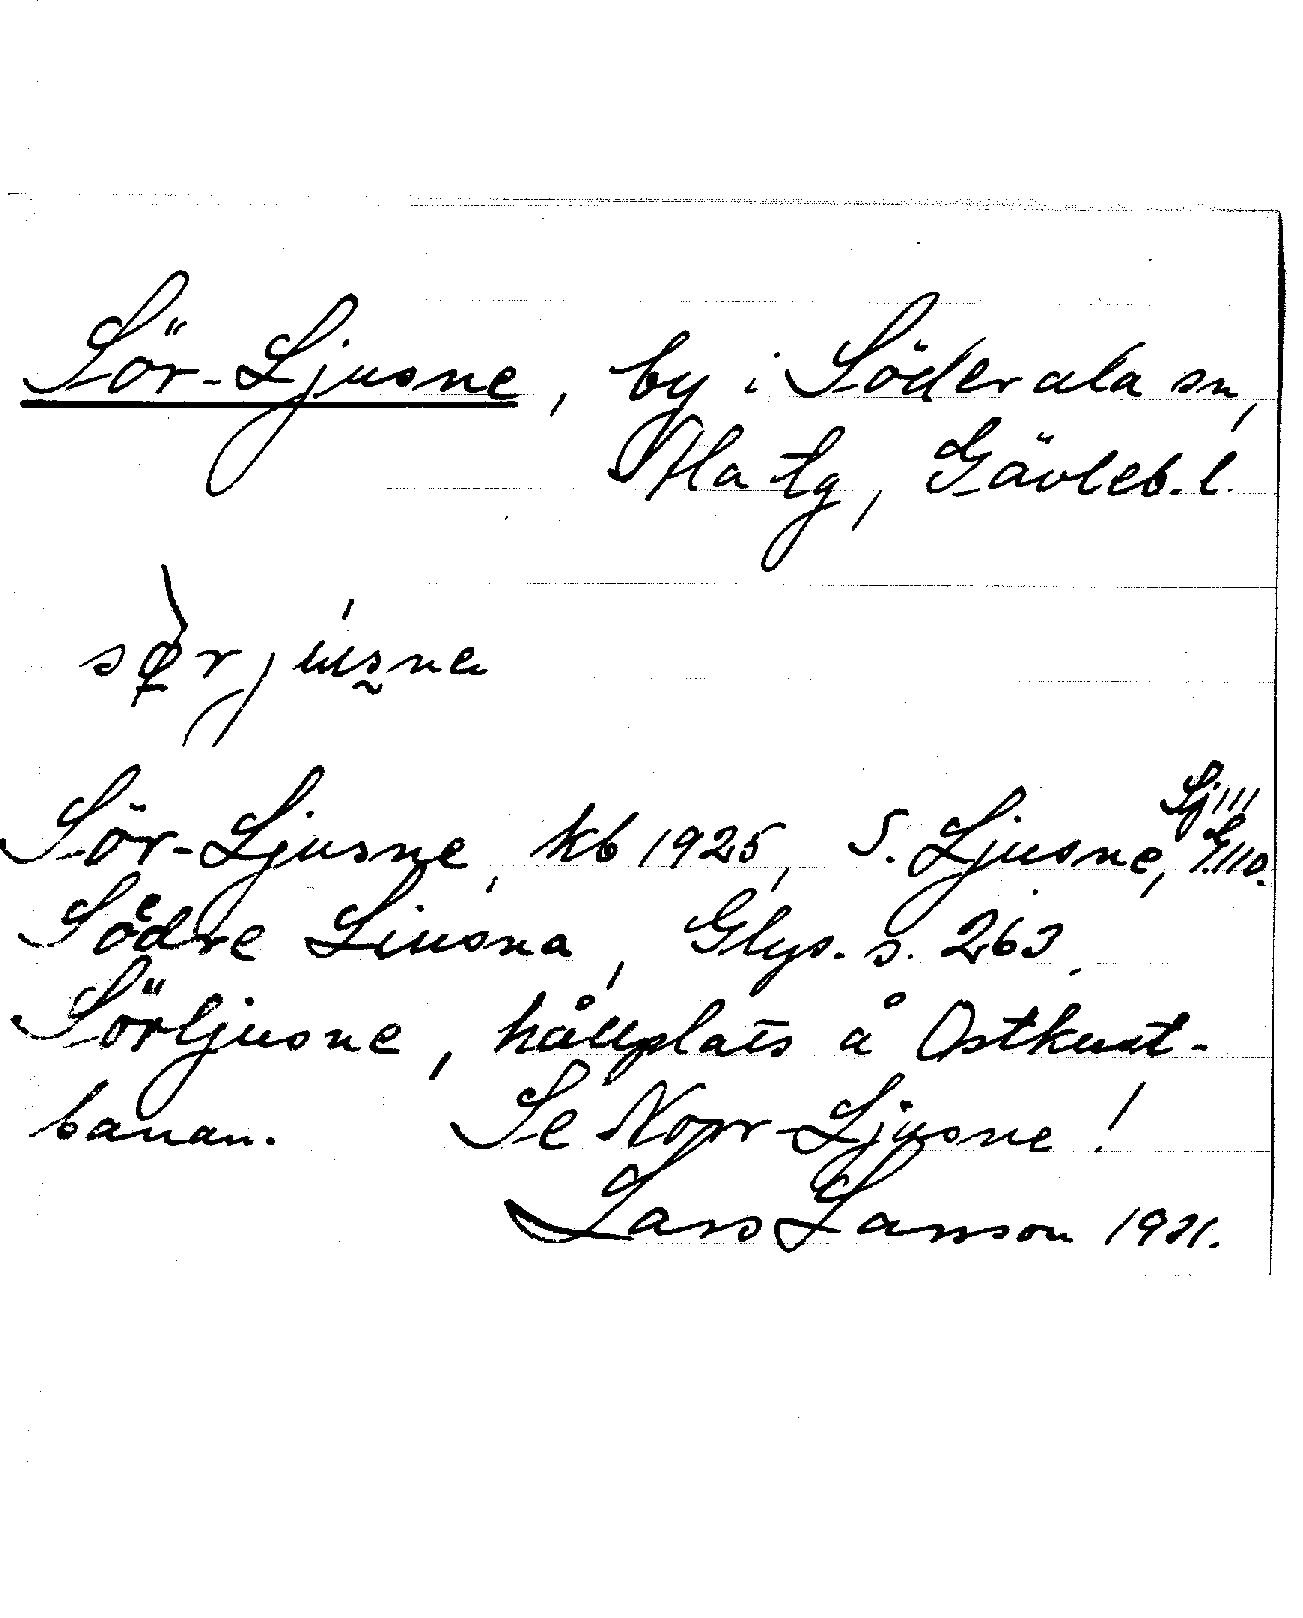 Sör-Ljusne, by i Söderala sn,
Ala tg, Gävleb. l.
sørjusne
Sör-Ljusne, kb 1925, S. Ljusne,
Soͤdre Liusna, Glys. s. 263.
Sörljusne, hållplats å Ostkust-
banan. Se Norr-Ljusne!
Lars Larsson